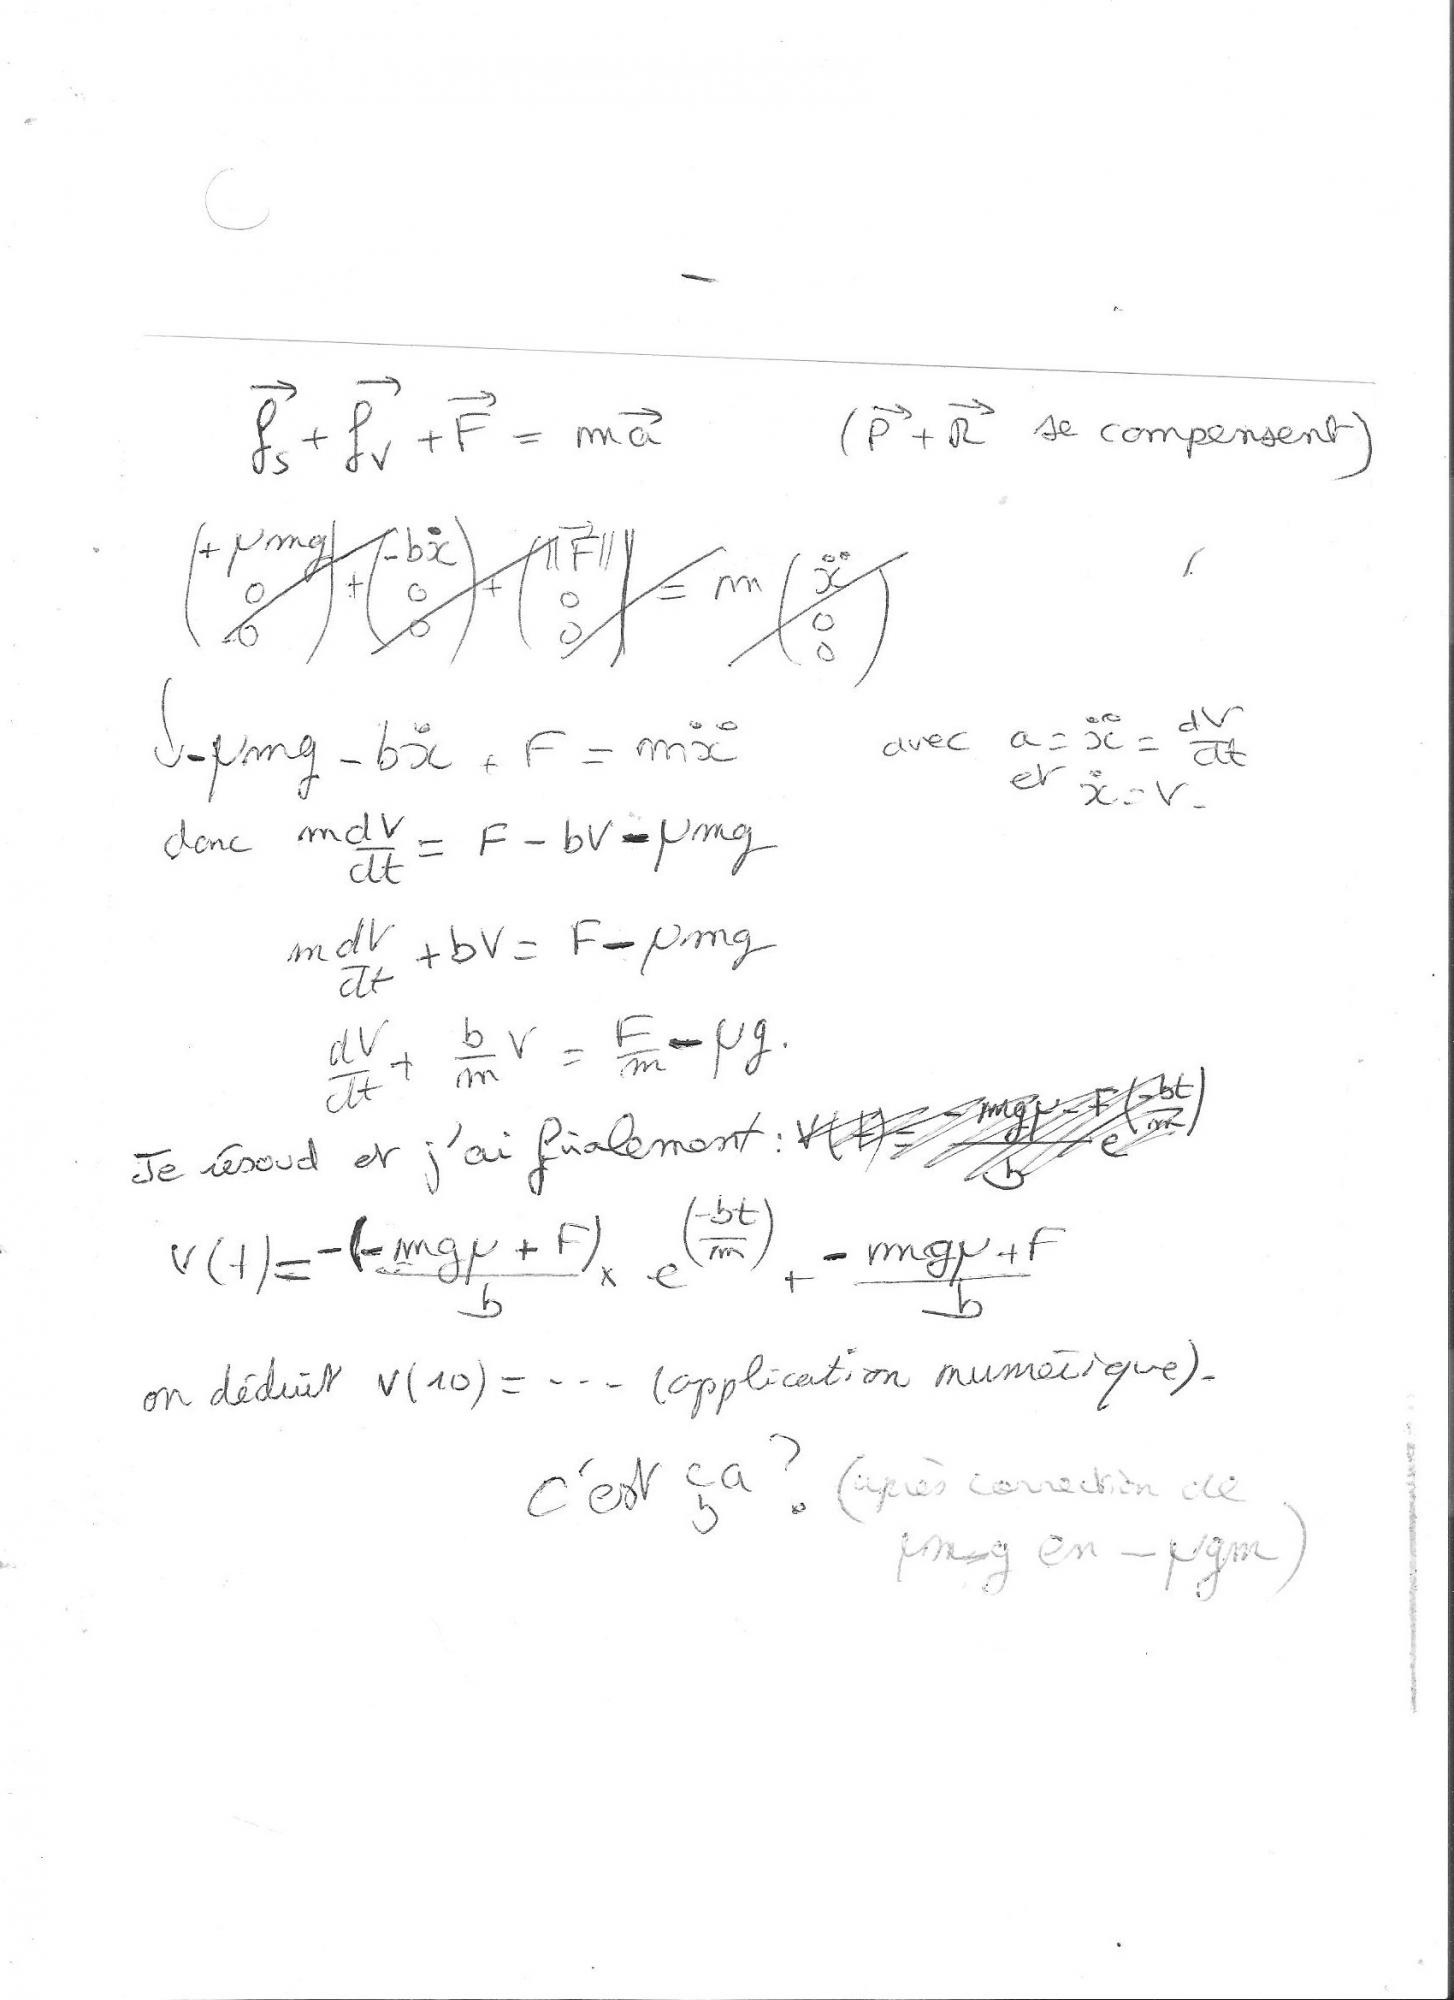 f⃗s + f⃗v + F⃗ = ma⃗ (P⃗ + R⃗ se compensent)
(+μmg 0 0) + (-bẋ 0 0) + (||F⃗|| 0 0) = m (ẍ 0 0)
-μmg - bẋ + F = mẍ avec a = ẍ = dV/dt
et ẋ = V.
donc m dV/dt = F - bV - μmg
m dV/dt + bV = F - μmg
dV/dt + b/m V = F/m - μg.
Je résoud et j'ai finalement : V(t) = -mgμ-F/b e^(-bt/m)
V(t) = -(-mgμ + F)/b × e^(-bt/m) + -mgμ+F/b
on déduit V(10) = --- (application numérique).
C'est ça ? (après correction de
μmg en -μgm)